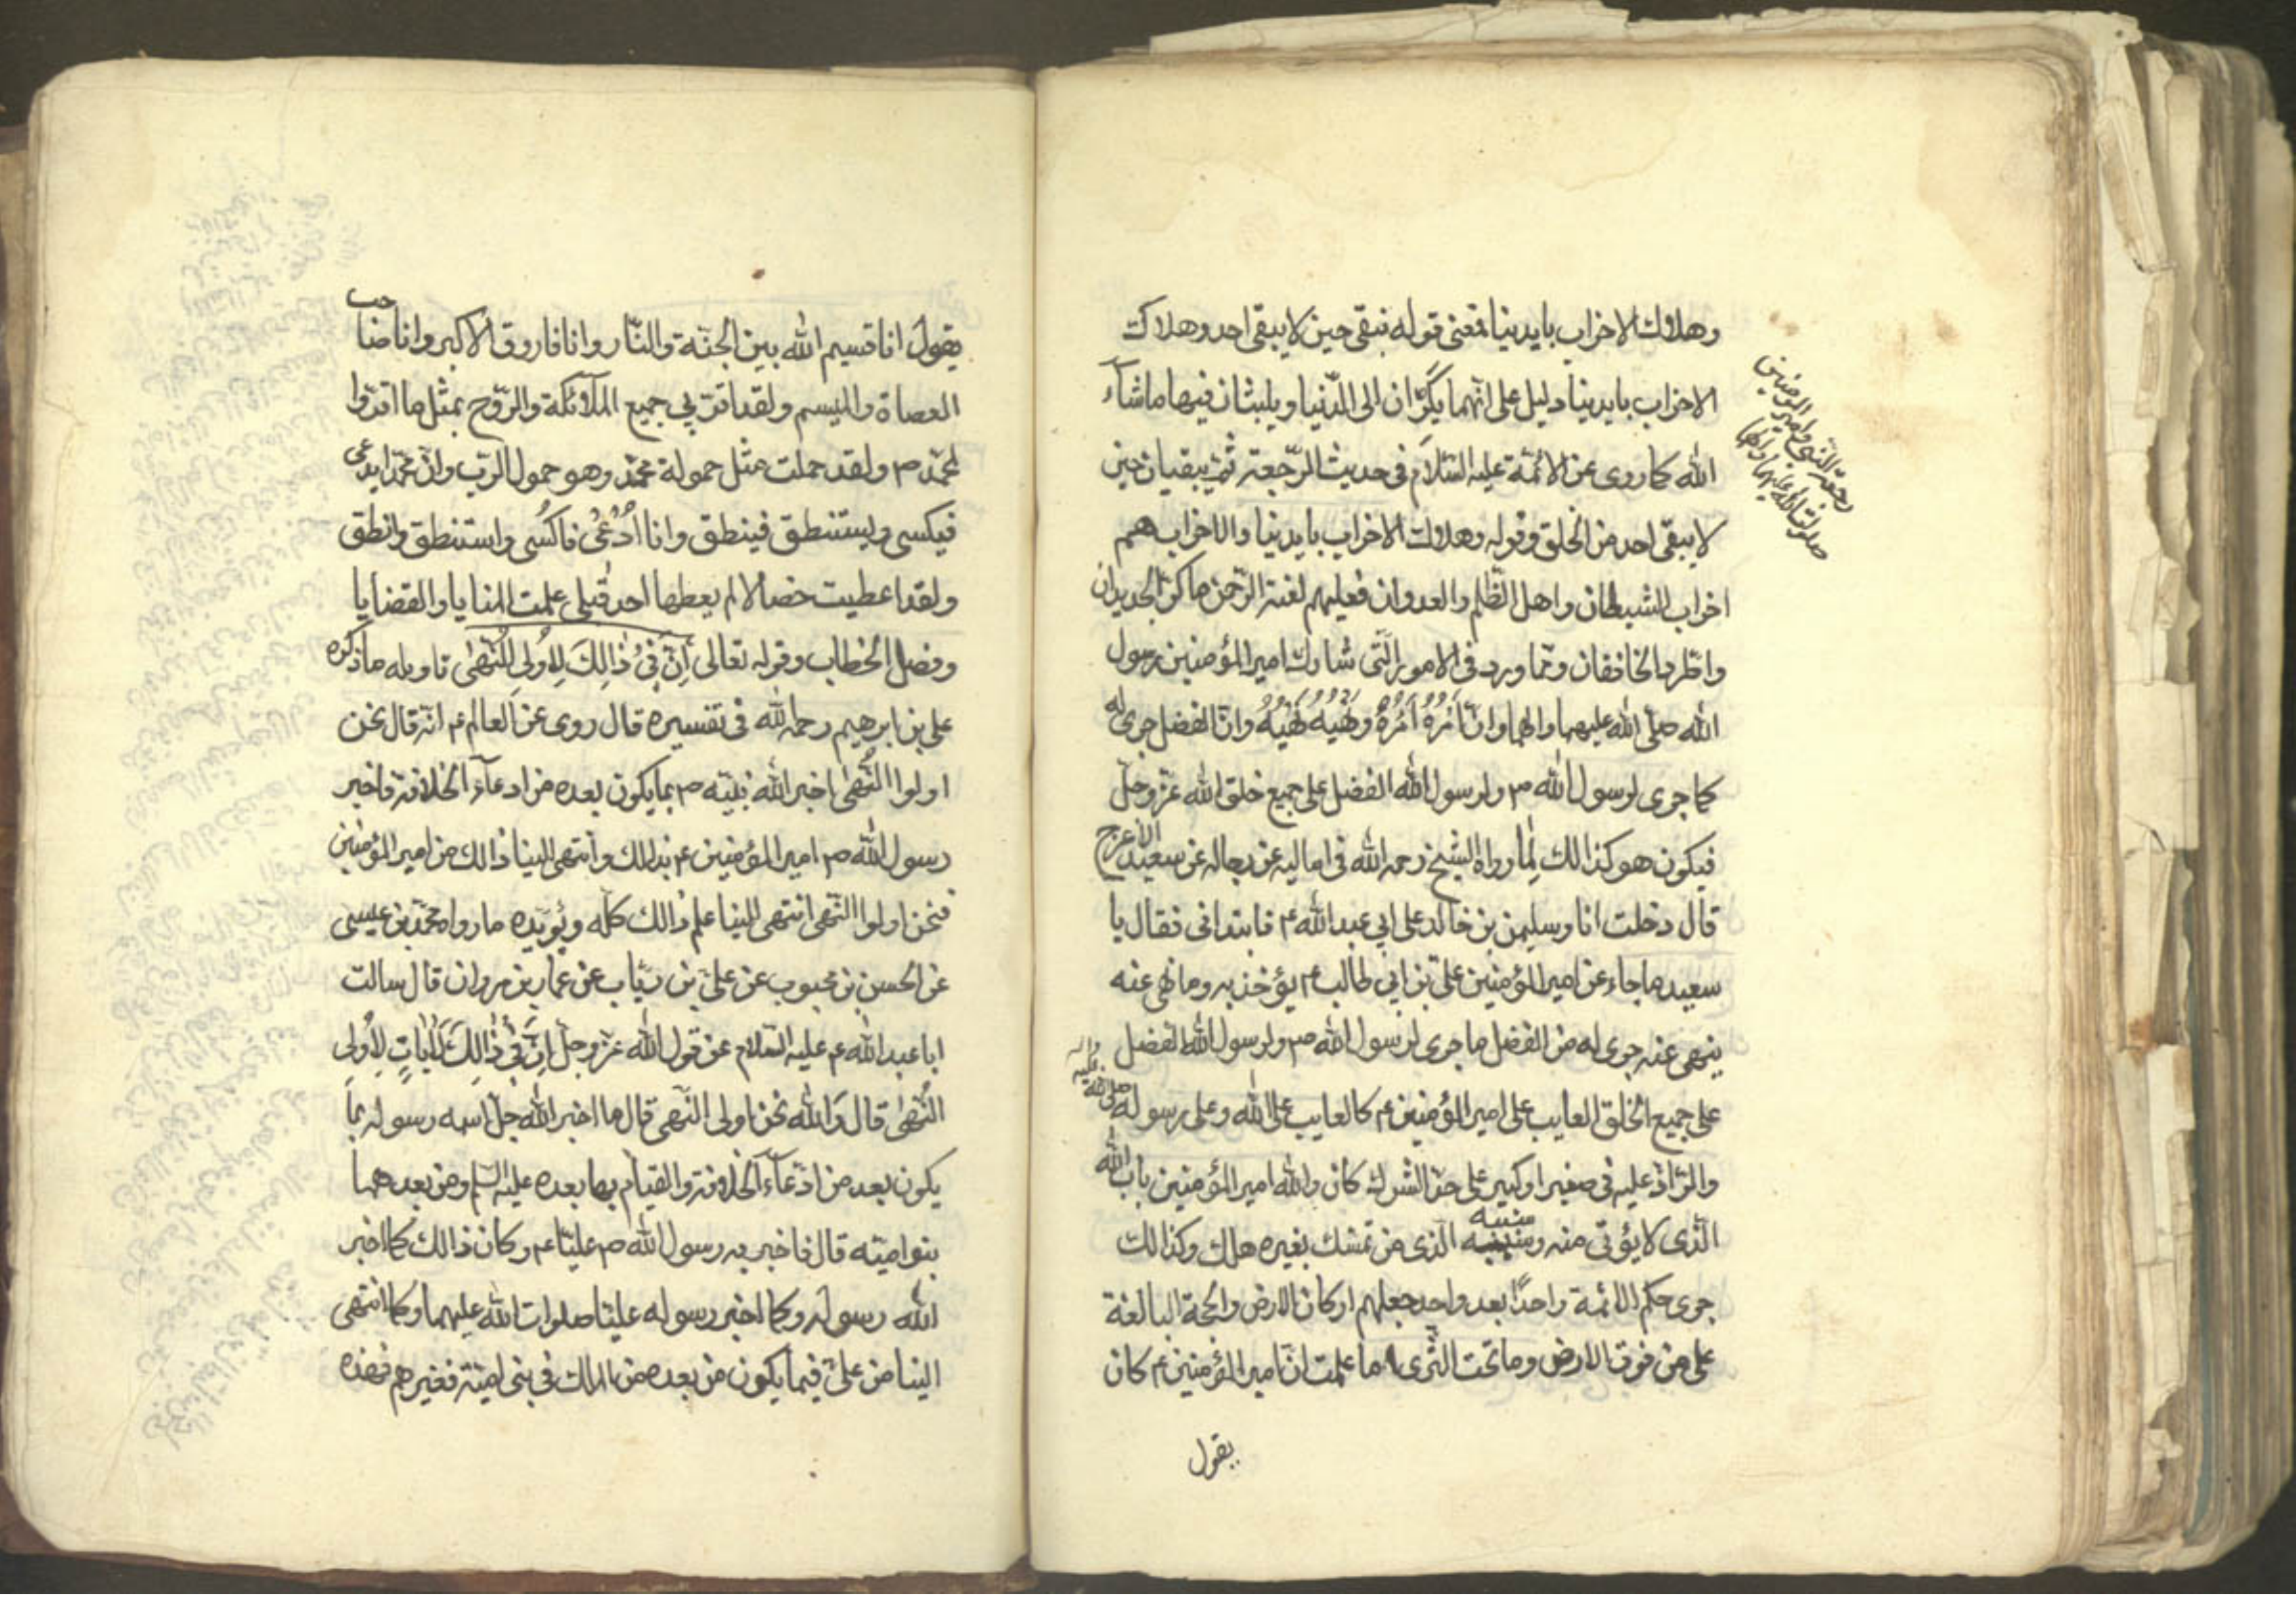 وهلاك الاحزاب بايدينا فمعنى قوله نبقى حين لا يبقى احد وهلاك
الاحزاب بايدينا دليل على انهما يكرّان الى الدّنيا ويلبثان فيها ما شاء
الله كما روى عن الائمّة عليه السّلام فى حديث الرّجعة ثمّ يبقيان حين
لا يبقى احد من الخلق وقوله وهلاك الاحزاب بايدينا والاحزاب هم
احزاب الشيطان واهل الظّلم والعدوان فعليهم لعنة الرّحمن ما كرّ الجديدان
واطّرد الخافقان وممّا ورد فى الامور الّتى شارك امير المؤمنين رسول
الله صلّى الله عليهما والهما وانّ اَمْرُهُ اَمْرُهُ ونَهْيُهُ نَهْيُهُ وانّ الفضل جرى له
كما جرى لرسول الله ص ولرسول الله الفضل على جميع خلق الله عزّ وجلّ
فيكون هو كذالك لِما رواه الشيخ رحمه الله فى اماليه عن رجاله عن سعيد الاعرج
قال دخلت انا وسليمن بن خالد على ابى عبد الله ع فابتدانى فقال يا
سعيد ما جاء عن امير المؤمنين علىّ بن ابى طالب ع يؤخذ به وما نهى عنه
ينتهى عنه جرى له من الفضل ما جرى لرسول الله ص ولرسول الله الفضل
على جميع الخلق العايب على امير المؤمنين ع كالعايب على الله وعلى رسوله صلى الله عليه واله
والرّادّ عليه فى صغير او كبير على حدّ الشرك كان والله امير المؤمنين باب الله
الّذى لا يؤتى منه و سبيله الّذى من تمسّك بغيره هلك وكذالك
جرى حكم الائمة واحدًا بعد واحد جعلهم اركان الارض والحجة البالغة
على من فوق الارض وما تحت الثّرى اما علمت انّ امير المؤمنين ع كان
يقول
رجعة النبى وامير المؤمنين
صلوات الله عليهما والهما
يقول انا قسيم الله بين الجنّة والنّار وانا فاروق الاكبر وانا صاحب
العصاة والميسم ولقد اقرّت لى جميع الملآئكة والرّوح بمثل ما اقرّوا
لمحمّد ص ولقد حملت مثل حمولة محمّد وهو حمول الرب وانّ محمّدا يدعى
فيكسى ويستنطق فينطق وانا اُدْعى فاكسى واستنطق وانطق
ولقد اعطيت خصالا لم يعطها احد قبلى علمت المنايا والقضايا
وفصل الخطاب وقوله تعالى اِنَّ فى ذالِكَ لِاُولى النُّهى تاويله ما ذكره
على بن ابرهيم رحمه الله فى تفسيره قال روى عن العالم ع انّه قال نحن
اولوا النُّهى اخبر الله نبيّه ص بما يكون بعده من ادعآء الخلافة فاخبر
رسول الله ص امير المؤمنين ع بذالك وانتهى الينا ذالك من امير المؤمنين
فنحن اولوا النّهى انتهى الينا علم ذالك كلّه ويؤيّده ما رواه محمّد بن عيسى
عن الحسن بن محبوب عن علىّ بن رياب عن عمار بن مروان قال سالت
ابا عبد الله ع عليه السّلام عن قول الله عزّ وجلّ اِنَّ فى ذالِكَ لَاياتٍ لِاُولى
النُّهى قال وَالله نحن اولى النّهى قال ما اخبر الله جلّ اسمه رسوله بما
يكون بعد من ادّعآء الخلافة والقيام بها بعده عليه السّلم ومن بعدهما
بنو اميّه قال فاخبر به رسول الله ص عليّا ع وكان ذالك كما اخبر
الله رسوله وكما اخبر رسوله عليّا صلوات الله عليهما وكما انتهى
الينا من علىّ فيما يكون من بعده من الملك فى بنى اميّة فغيرهم فهذه